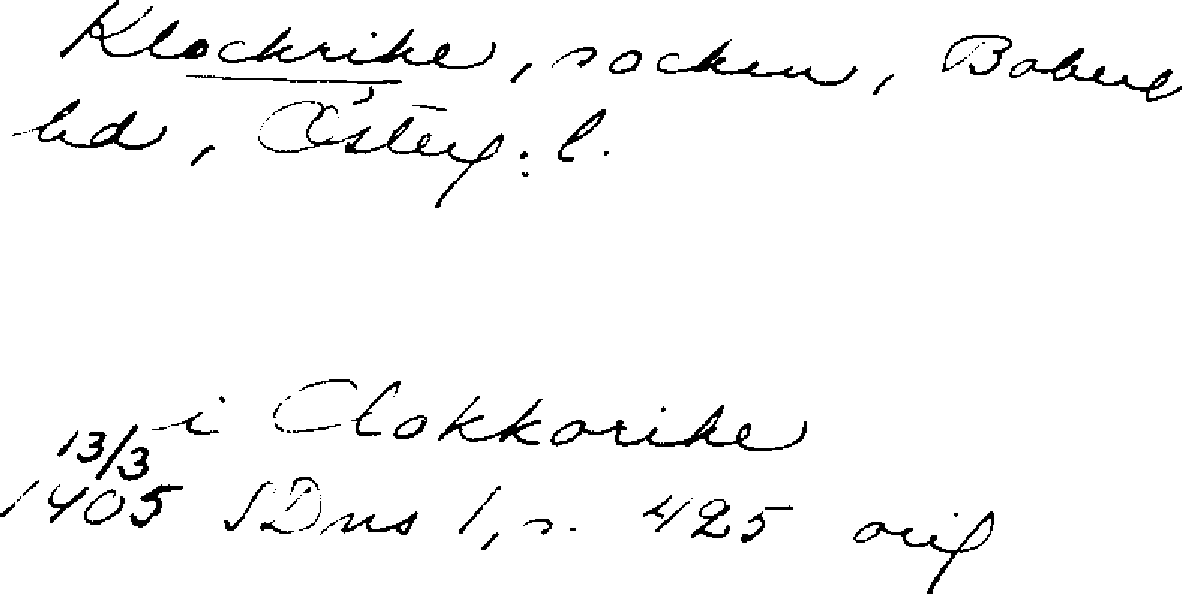 Klockrike, socken, Boberg
hd, Österg:l.
i Clokkorike
13/3
1405 SDns 1, s. 425 orig